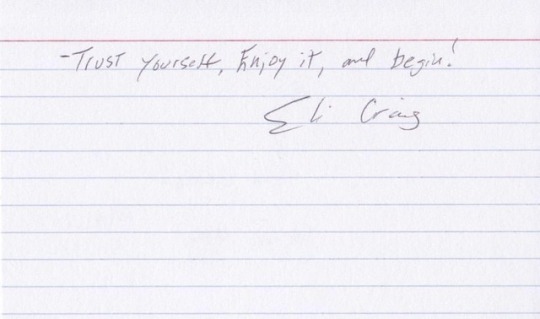 -Trust yourself, Enjoy it, and begin!
Eli Craig